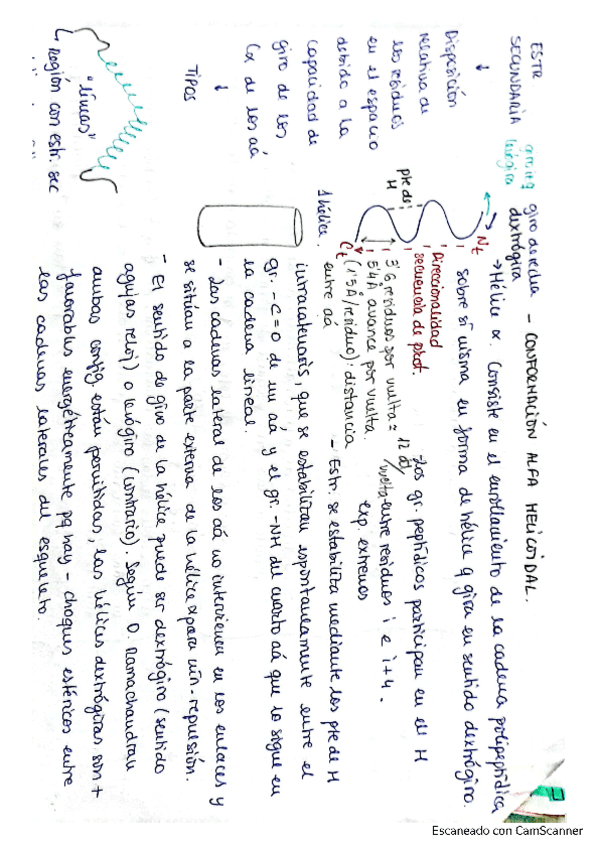 ESTR
SECUNDARIA
↓
Disposición
relativa de
los residuos
en el espacio
debido a la
capacidad de
giro de los
Cα de los aá
↓
TIPOS
"líneas"
↳ Región con estr. sec
giro izq
levógira
giro derecha
dextrógira
- CONFORMACIÓN ALFA HELICOIDAL.
→ Hélice α. Consiste en el enrollamiento de la cadena polipeptídica
sobre sí misma en forma de hélice q gira en sentido dextrógiro.
Nt
Direccionalidad
secuencia de prot.
pte de
H
Ct
1 hélice.
3'6 residuos por vuelta =
5'4Å avance por vuelta.
(1'5Å/residuo): distancia
entre aá
- Los gr. peptídicos participan en el H
/vuelta entre residuos i e i+4.
exp. extremos
- Estr. se estabiliza mediante los pte de H
intracatenaris, que se establecen espontaneamente entre el
gr. -C=O de un aá y el gr. -NH del cuarto aá que lo sigue en
la cadena lineal.
- Las cadenas lateral de los aá no intervienen en los enlaces y
se sitúan a la parte externa de la hélice para mín-repulsión.
- El sentido de giro de la hélice puede ser dextrógiro (sentido
agujas reloj) o levógiro (contrario). Según D. Ramachandran
ambas config. están permitidas, las hélices dextrógiras son +
favorables energéticamente pq hay - choques estéricos entre
las cadenas laterales del esqueleto.
Escaneado con CamScanner